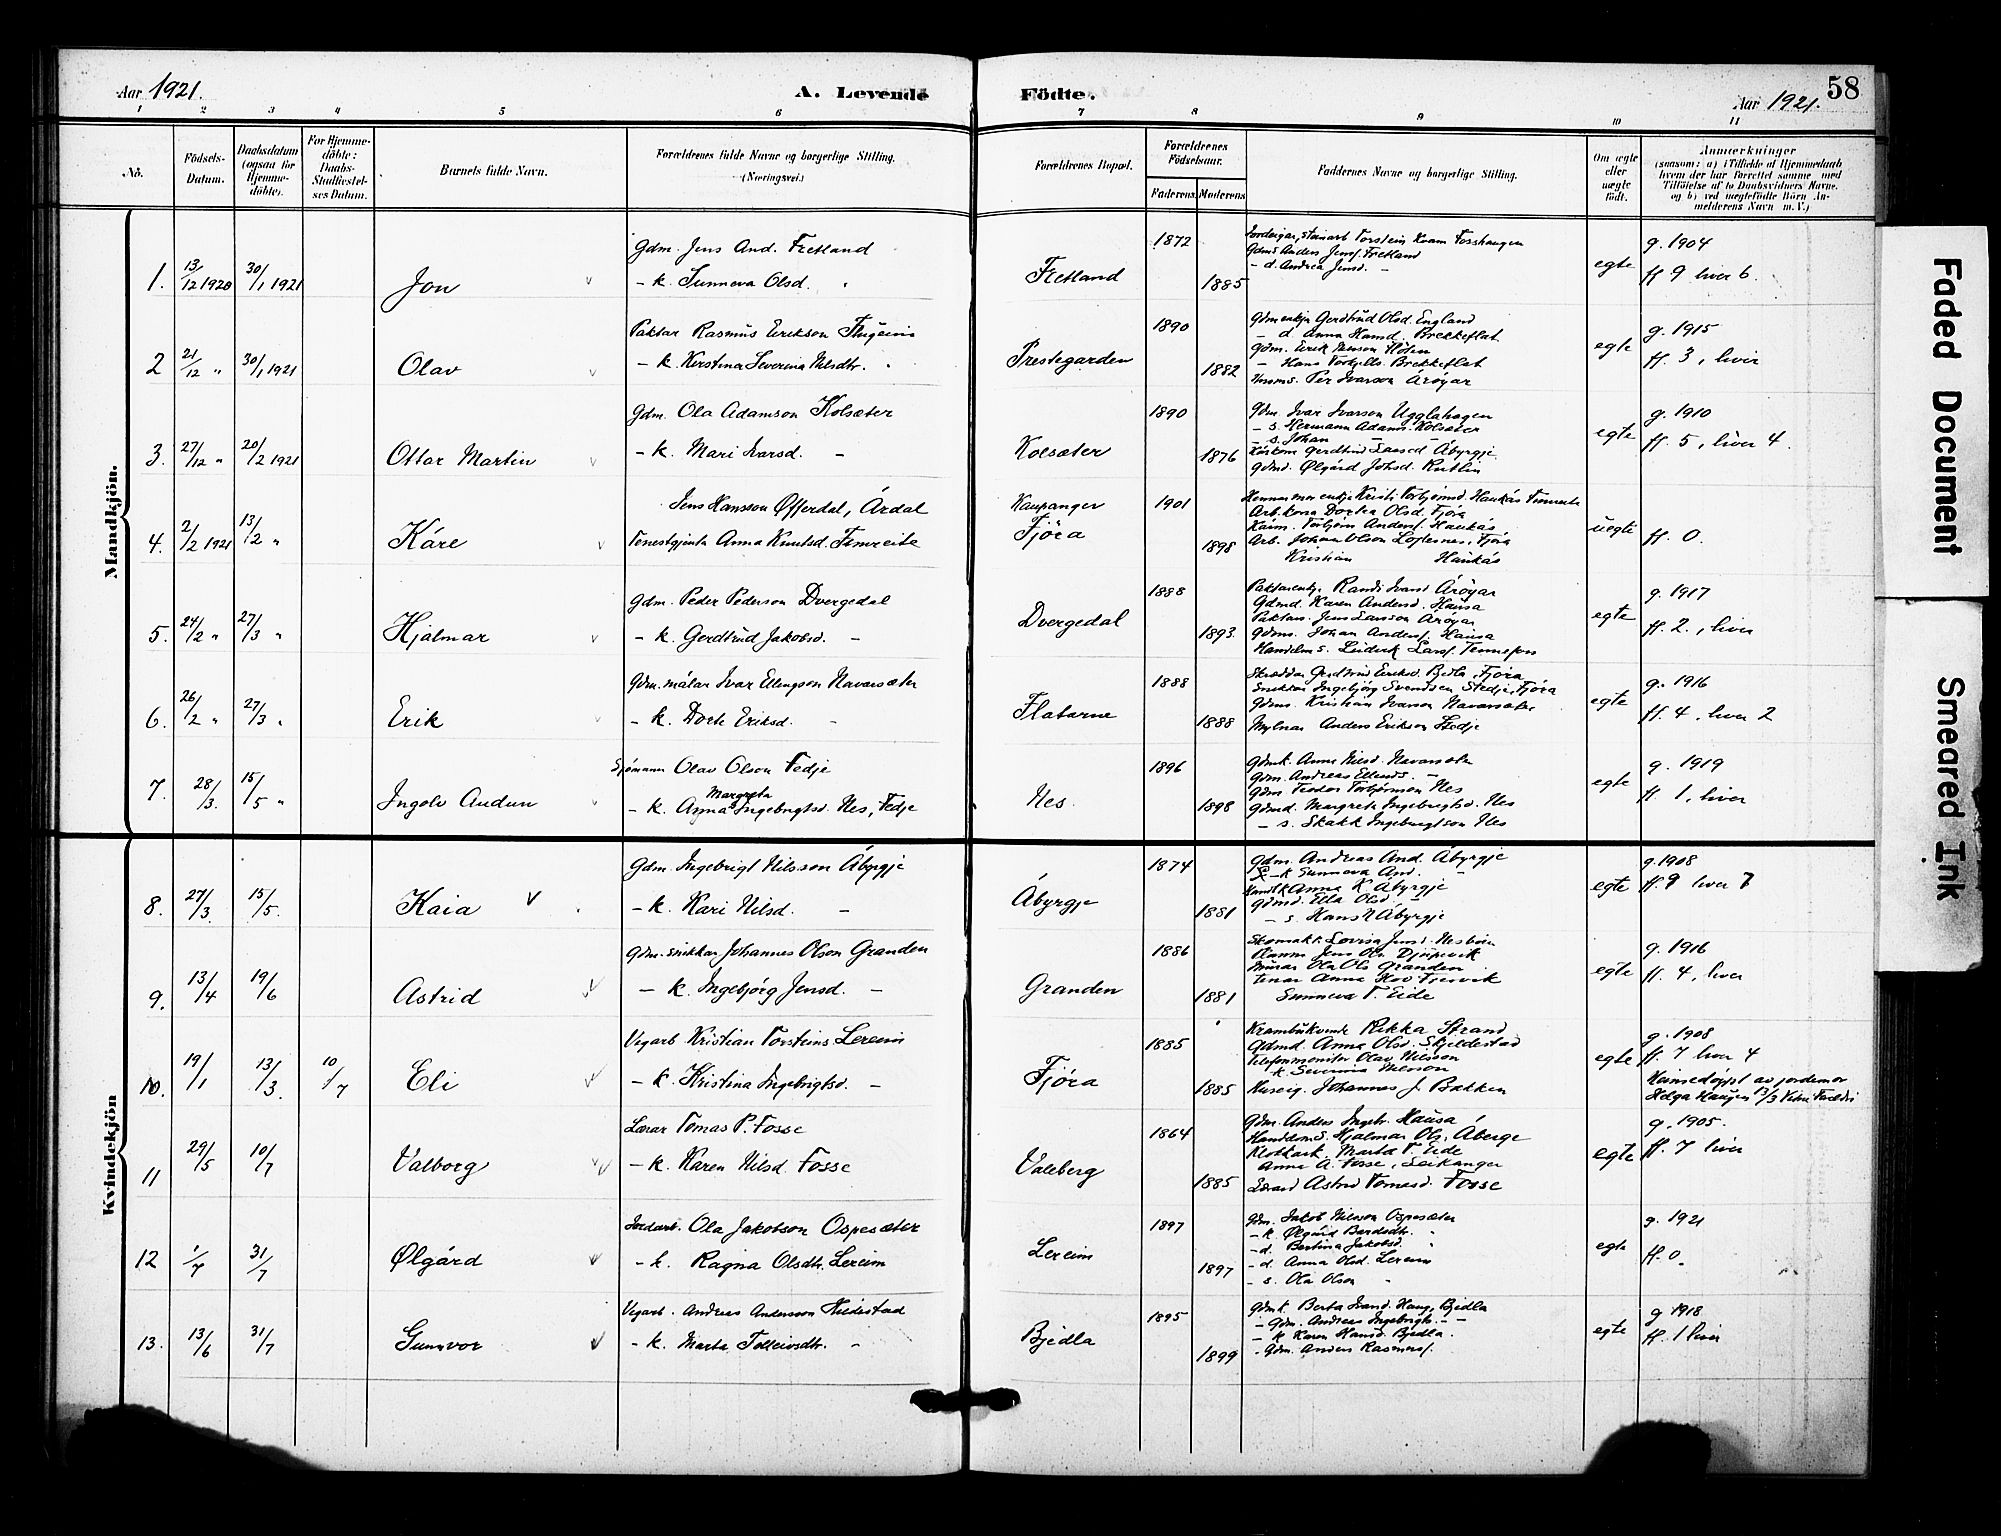 Aar 1921.
A. Levende
Födte.
58
Aar 1921.
1 2 3 4 5 6 7 8 9 10 11
No.
Födsels-Datum.
Daabsdatum (ogsaa for Hjemme-döbte).
For Hjemme-döbte: Daabs-Stadfæstel-ses Datum.
Barnets fulde Navn.
Forældrenes fulde Navne og borgerlige Stilling. (Næringsvei.)
Forældrenes Bopæl.
Forældrenes Födselsaar.
Faderens. Moderens.
Faddernes Navne og borgerlige Stilling.
Om ægte eller uægte födt.
Anmærkninger
(saasom: a) i Tilfælde af Hjemmedaab
hvem der har forrettet samme med
Tilföielse af to Daabsvidners Navne.
og b) ved uægtefödte Börn An-
melderens Navn m. V.)
Mandkjön.
1. 13/12 1920 30/1 1921 Jon
Gdm. Jens And. Fretland
- k. Sunneva Olsd. "
Fretland 1872 1885
Torstein Kvam Fosshaugen
Gdms Anders Jens. Fretland
- d. Andrea Jensd. -
egte
g. 1904
ff 9 liver 6.
2 21/12 " 30/1 1921 Olav
Paktar Rasmus Eirikson
- k. Kerstina Severina Nilsdtr. "
Prestegarden 1890 1882
Gdmenkja Gerdtrud Olsd. England
- d. Anna Hansd. Brekkeflat
Gdm. Eirik
- Hans Brekkeflat
Per Ivarson Årøyar
egte
g. 1915
ff 3, liver
3. 27/12 " 20/2 1921 Ottar Martin
Gdm. Ola Adamson Kolsæter
- k. Mari Ivarsd. -
Kolsæter 1890 1876
Gdm. Ivar Ivarson Ugglahagen
- s. Hermann Adams. Kolsæter
- s. Johan - -
Gerdtrud Åbyrgje
Gdmd. Ølgård Johsd. Kvitlin
egte
g. 1910
ff. 5, liver 4.
4. 2/2 1921 13/2 " Kåre
Jens Hansson Øfferdal, Årdal
Tenestgjenta Anna Knutsd. Fimreite
Kaupanger
Fjöra 1901 1898
enkja Kristi Torbjørnsd. Haukås Fimreite
Arb.kona Dortea Olsd. Fjöra
Torbjörn Anders. Haukås
Arb. Johan Olson Loftesnes, Fjöra
Kristian Haukås
uegte
ff. 0.
5. 24/2 " 27/3 " Hjalmar
Gdm. Peder Pederson Dvergedal
- k. Gerdtrud Jakobsd. -
Dvergedal 1888 1893.
Randi Ivarsd Årøyar
Gdmd. Karen Andersd. Hausa
Paktars. Jens Larsson Årøyar
Gdms. Johan Anders. Hausa
Handelm s. Luderik Lars.
egte
g. 1917
ff. 2., liver
6. 26/2 " 27/3 " Erik
Gdm. målar Ivar Ellingson Navarsæter
- k. Dorte Eriksd. -
Flatarne 1888 1888
Gerdtrud Eriksd. Bjedla, Fjöra
Snikkar Ingebjörg Svendsen Stedje, Fjöra
Gdms. Kristian Ivarson Navarsæter
Mylnar Anders Erikson Stedje
egte
g. 1916
ff. 4, liver 2
7. 28/3. 15/5 " Ingolv Audun
Sjömann Olav Olson Fedje
Margreta
- k. Anna Ingebrigtsd. Nes, Fedje
Nes. 1896 1898
Gdmk. Anna Nilsd. Navarsete
Gdm. Andreas Ellends. -
Gdm Teodor Torbjørnson Nes
Gdmd. Margreta Ingebrigtsd. Nes
- s. Skakk Ingebrigtson Nes
egte
g. 1919
ff. 1, liver
Kvindekjön
8. 27/3. 15/5. Kaia
Gdm. Ingebrigt Nilsson Åbyrgje
- k. Kari Nilsd. -
Åbyrgje 1874 1881
Gdm. Andreas And. Åbyrgje
- k Sunneva And. -
Anna K. Åbyrgje
Gdmd. Ella Olsd. -
- s. Hans N Åbyrgje
egte
g. 1908
ff. 9 liver 7
9. 13/4 19/6 Astrid
Gdm. snikkar Johannes Olson Granden
- k. Ingebjörg Jensd. -
Granden 1886 1881
Skomakk Lovisa Jensd. Nesbøen
Jens Ol. Djupevik
Murar Ola Ols Granden
Anna Hov Fresvik
Sunneva T. Eide
egte
g. 1916
ff. 4, liver
10. 19/1 13/3. 10/7 Eli
Vegarb Kristian Torsteins Lereim
- k. Kristina Ingebrigtsd. -
Fjöra 1885 1885
Krambukvende Rikka Strand
Gdmd. Anna Olsd. Skjeldestad
Telefonmontör Olav Nilsson
k. Severina Nilsson
Huseig. Johannes J. Bakken
egte
g. 1908
ff. 7 liver 4
Heimedöypt av jordemor
Helga Haugen 13/3
11 29/5 10/7 Valborg
Lærar Tomas P. Fosse
- k. Karen Nilsd. Fosse
Valeberg 1864 1885
Gdm. Anders Ingebr. Hausa
Hjalmar Ols. Åberge
Klokkark. Marta T. Eide
Anna A. Fosse, Leikanger
Astrid Tomasd. Fosse
egte
g. 1905.
ff. 7 liver
12 1/7 31/7 Ølgård
Jordarb. Ola Jakobson Ospesæter
- k. Ragna Olsdtr. Lereim
Lereim 1897 1897
Gdm. Jakob Nilsson Ospesæter
- k. Ølgård Bardsdtr. "
- d. Bertina Jakobsd. "
- d. Anna Olsd. Lereim
- s. Ola Olson "
egte
g. 1921
ff. 0.
13. 13/6 31/7 Gunnvor
Vegarb. Andreas Andersson Hildestad
- k. Marta Tolleivsdtr. -
Bjedla 1895 1899
Gdmk. Berta Ivarsd. Haug, Bjedla
- Gdm. Andreas Ingebrigts. - -
- k. Karen Hansd. Bjedla.
- Gdm. Anders Rasmuss.
egte
g 1918
ff. 1 liver
Faded Document
Smeared Ink